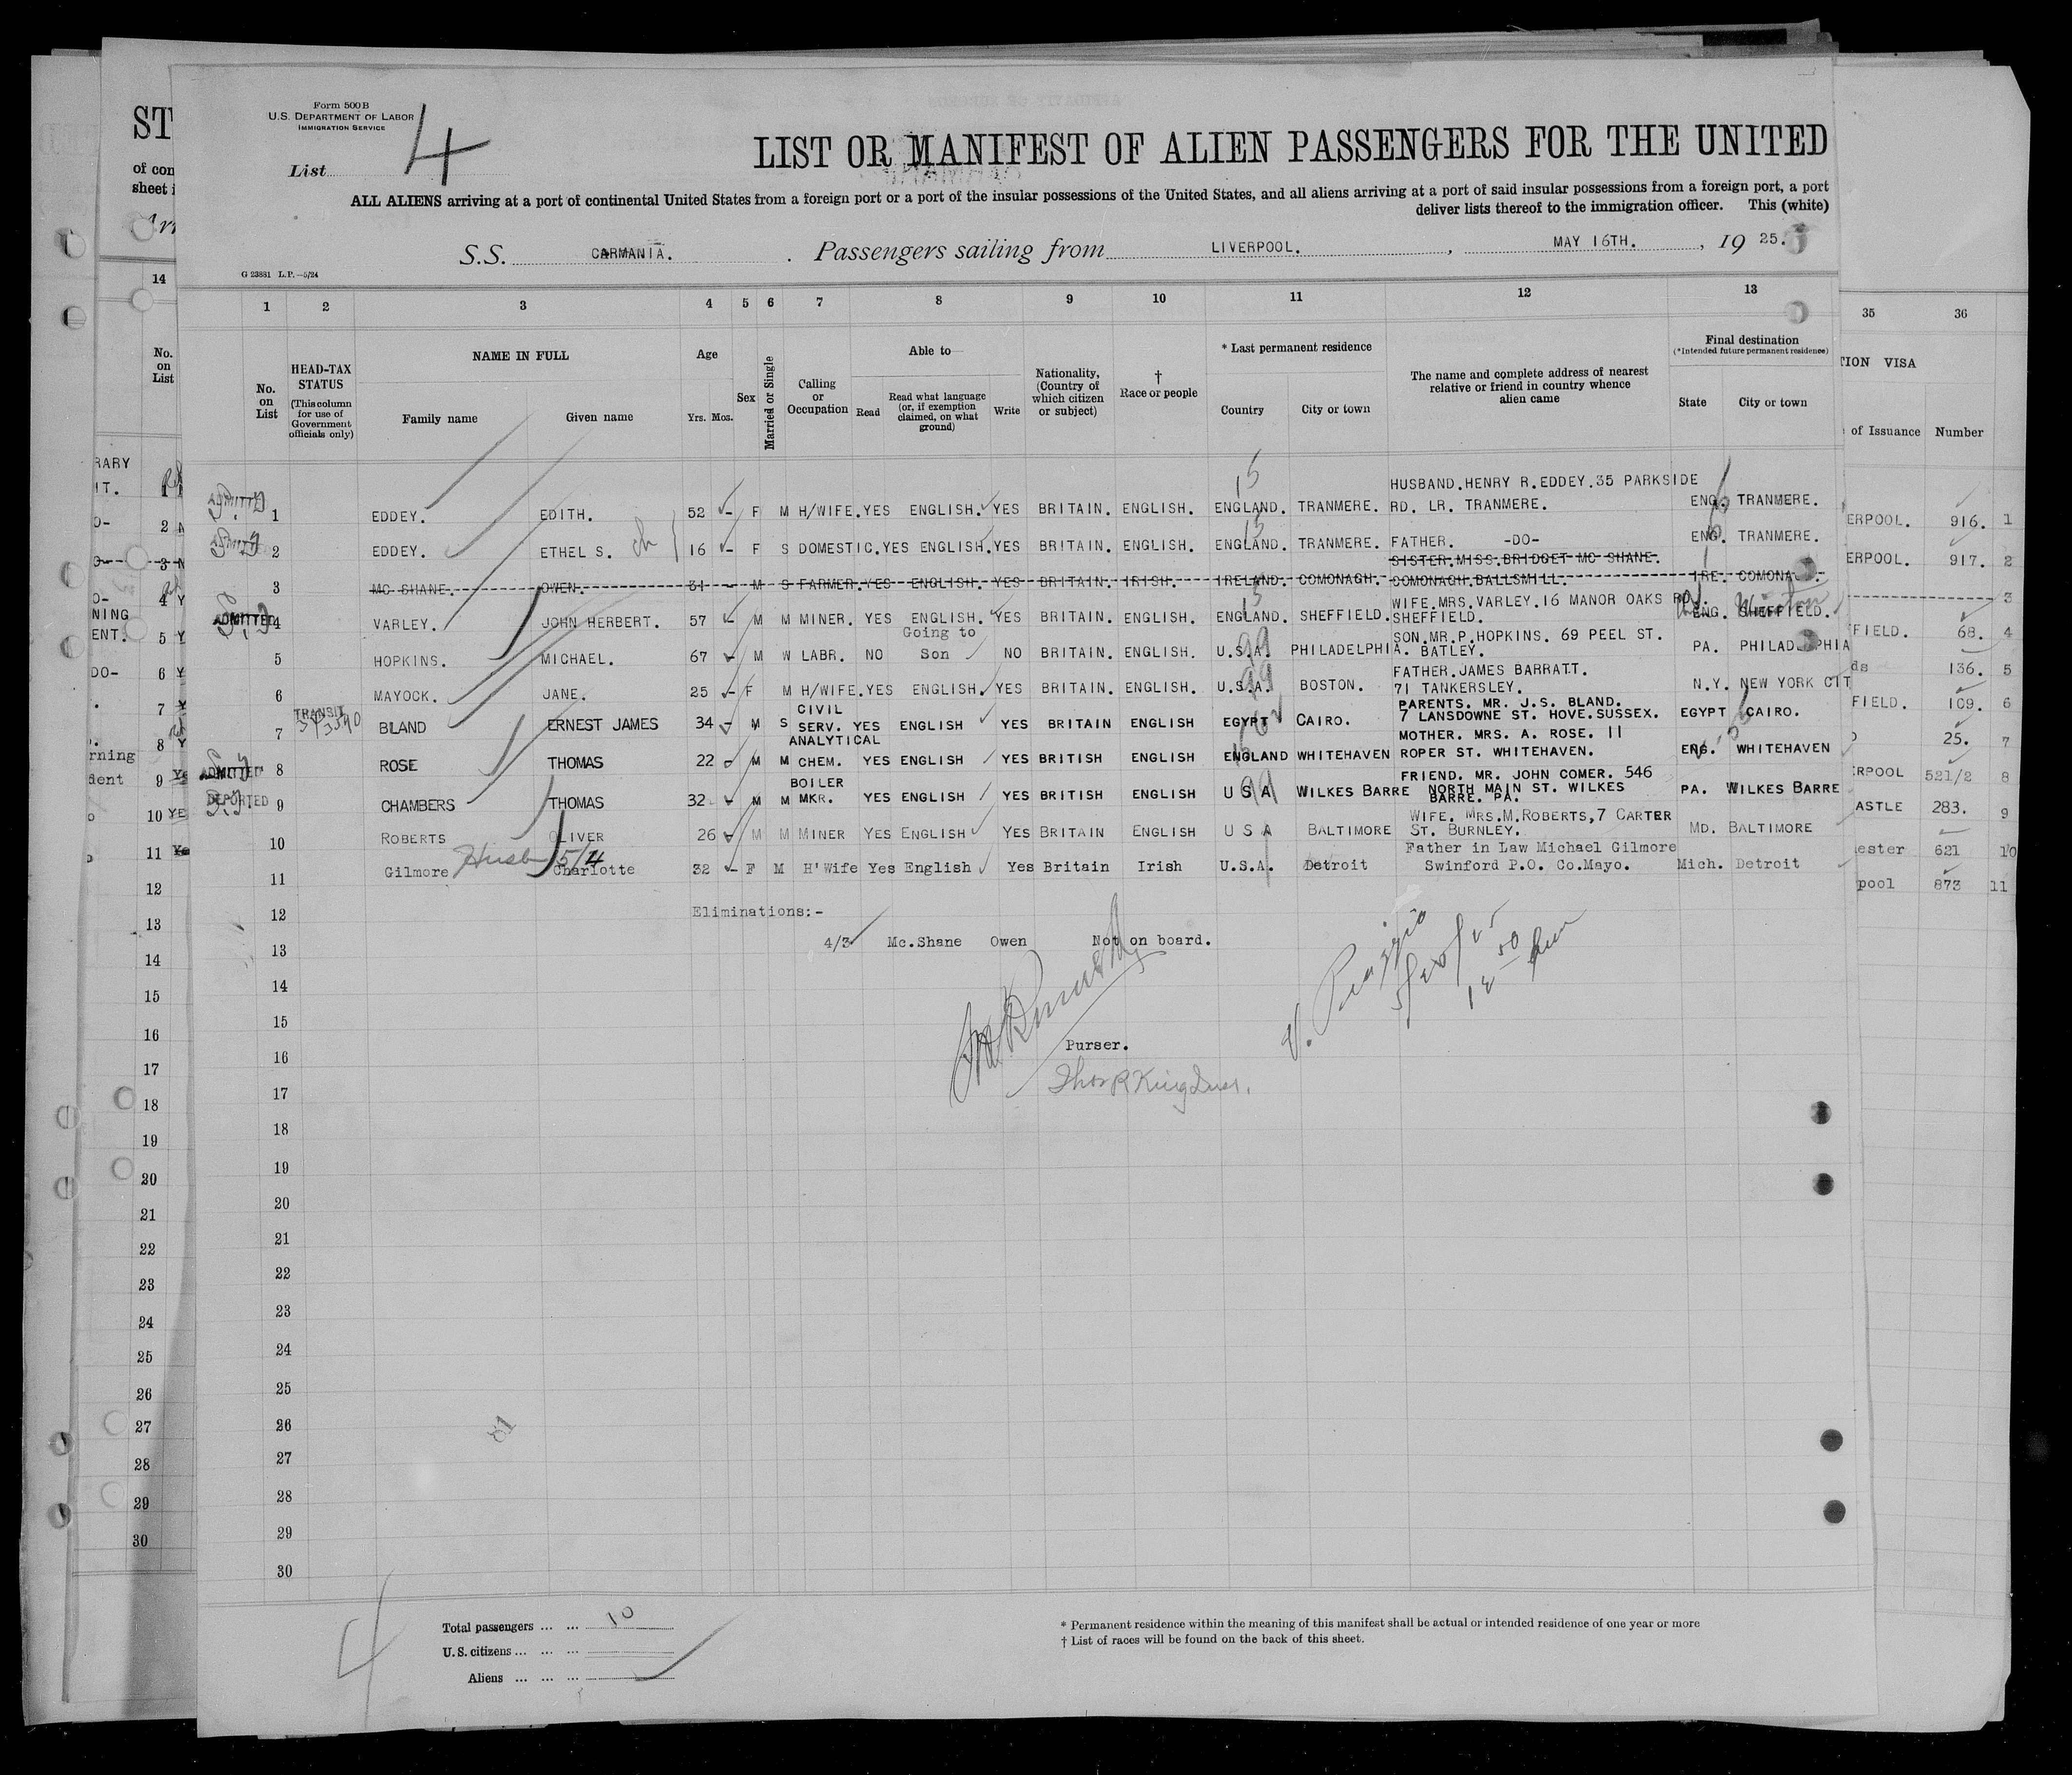 Form 500B
U.S. DEPARTMENT OF LABOR
IMMIGRATION SERVICE
List 4
LIST OR MANIFEST OF ALIEN PASSENGERS FOR THE UNITED
ALL ALIENS arriving at a port of continental United States from a foreign port or a port of the insular possessions of the United States, and all aliens arriving at a port of said insular possessions from a foreign port, a port
deliver lists thereof to the immigration officer. This (white)
S.S. CARMANIA. Passengers sailing from LIVERPOOL. , MAY 16TH. , 19 25.
G 23881 L.P.—5/24
1 2 3 4 5 6 7 8 9 10 11 12 13
No. on List
HEAD-TAX STATUS (This column for use of Government officials only)
NAME IN FULL
Family name Given name
Age
Yrs. Mos.
Sex
Married or Single
Calling or Occupation
Able to
Read
Read what language (or, if exemption claimed, on what ground)
Write
Nationality, (Country of which citizen or subject)
† Race or people
* Last permanent residence
Country City or town
The name and complete address of nearest relative or friend in country whence alien came
Final destination
(*Intended future permanent residence)
State City or town
HUSBAND.HENRY R.EDDEY.35 PARKSIDE
ADMITTED 1 EDDEY. EDITH. 52 - F M H/WIFE. YES ENGLISH. YES BRITAIN. ENGLISH. ENGLAND. TRANMERE. RD. LR. TRANMERE. ENG. TRANMERE.
ADMITTED 2 EDDEY. ETHEL S. 16 - F S DOMESTIC. YES ENGLISH. YES BRITAIN. ENGLISH. ENGLAND. TRANMERE. FATHER. -DO- ENG. TRANMERE.
SISTER.MISS.BRIDGET MC SHANE.
3 MC SHANE. OWEN. 31 - M S FARMER. YES ENGLISH. YES BRITAIN. IRISH. IRELAND. COMONAGH. COMONAGH.BALLSMILL. IRE. COMONA
WIFE.MRS.VARLEY.16 MANOR OAKS RD.
ADMITTED 4 VARLEY. JOHN HERBERT. 57 - M M MINER. YES ENGLISH. YES BRITAIN. ENGLISH. ENGLAND. SHEFFIELD. SHEFFIELD. ENG. SHEFFIELD.
Going to SON.MR.P.HOPKINS. 69 PEEL ST.
5 HOPKINS. MICHAEL. 67 - M W LABR. NO Son NO BRITAIN. ENGLISH. U.S.A. PHILADELPHIA. BATLEY. PA. PHILADELPHIA
FATHER.JAMES BARRATT.
6 MAYOCK. JANE. 25 - F M H/WIFE. YES ENGLISH. YES BRITAIN. ENGLISH. U.S.A. BOSTON. 71 TANKERSLEY. N.Y. NEW YORK CIT
TRANSIT CIVIL PARENTS. MR. J.S. BLAND.
7 BLAND ERNEST JAMES 34 - M S SERV. YES ENGLISH YES BRITAIN ENGLISH EGYPT CAIRO. 7 LANSDOWNE ST. HOVE.SUSSEX. EGYPT CAIRO.
ANALYTICAL MOTHER. MRS. A. ROSE. 11
ADMITTED 8 ROSE THOMAS 22 - M M CHEM. YES ENGLISH YES BRITISH ENGLISH ENGLAND WHITEHAVEN ROPER ST. WHITEHAVEN. ENG. WHITEHAVEN
BOILER FRIEND. MR. JOHN COMER. 546
DEPORTED 9 CHAMBERS THOMAS 32 - M M MKR. YES ENGLISH YES BRITISH ENGLISH U S A WILKES BARRE NORTH MAIN ST. WILKES BARRE. PA. PA. WILKES BARRE
WIFE. MRS.M.ROBERTS,7 CARTER
10 ROBERTS OLIVER 26 - M M MINER YES ENGLISH YES BRITAIN ENGLISH U S A BALTIMORE ST. BURNLEY. MD. BALTIMORE
5/4 Father in Law Michael Gilmore
11 Gilmore Charlotte 32 - F M H'Wife Yes English Yes Britain Irish U.S.A. Detroit Swinford P.O. Co.Mayo. Mich. Detroit
12 Eliminations:-
13 4/3 Mc.Shane Owen Not on board.
14
15
16 Purser.
17
18
19
20
21
22
23
24
25
26
27
28
29
30
Total passengers 10
U.S. citizens
Aliens
4
* Permanent residence within the meaning of this manifest shall be actual or intended residence of one year or more
† List of races will be found on the back of this sheet.
ST
of con
sheet i
14
No. on List
35 36
TION VISA
of Issuance Number
ERPOOL. 916. 1
ERPOOL. 917. 2
3
FFIELD. 68. 4
ds 136. 5
FFIELD. 109. 6
25. 7
RPOOL 521/2 8
ASTLE 283. 9
ester 621 10
pool 873 11